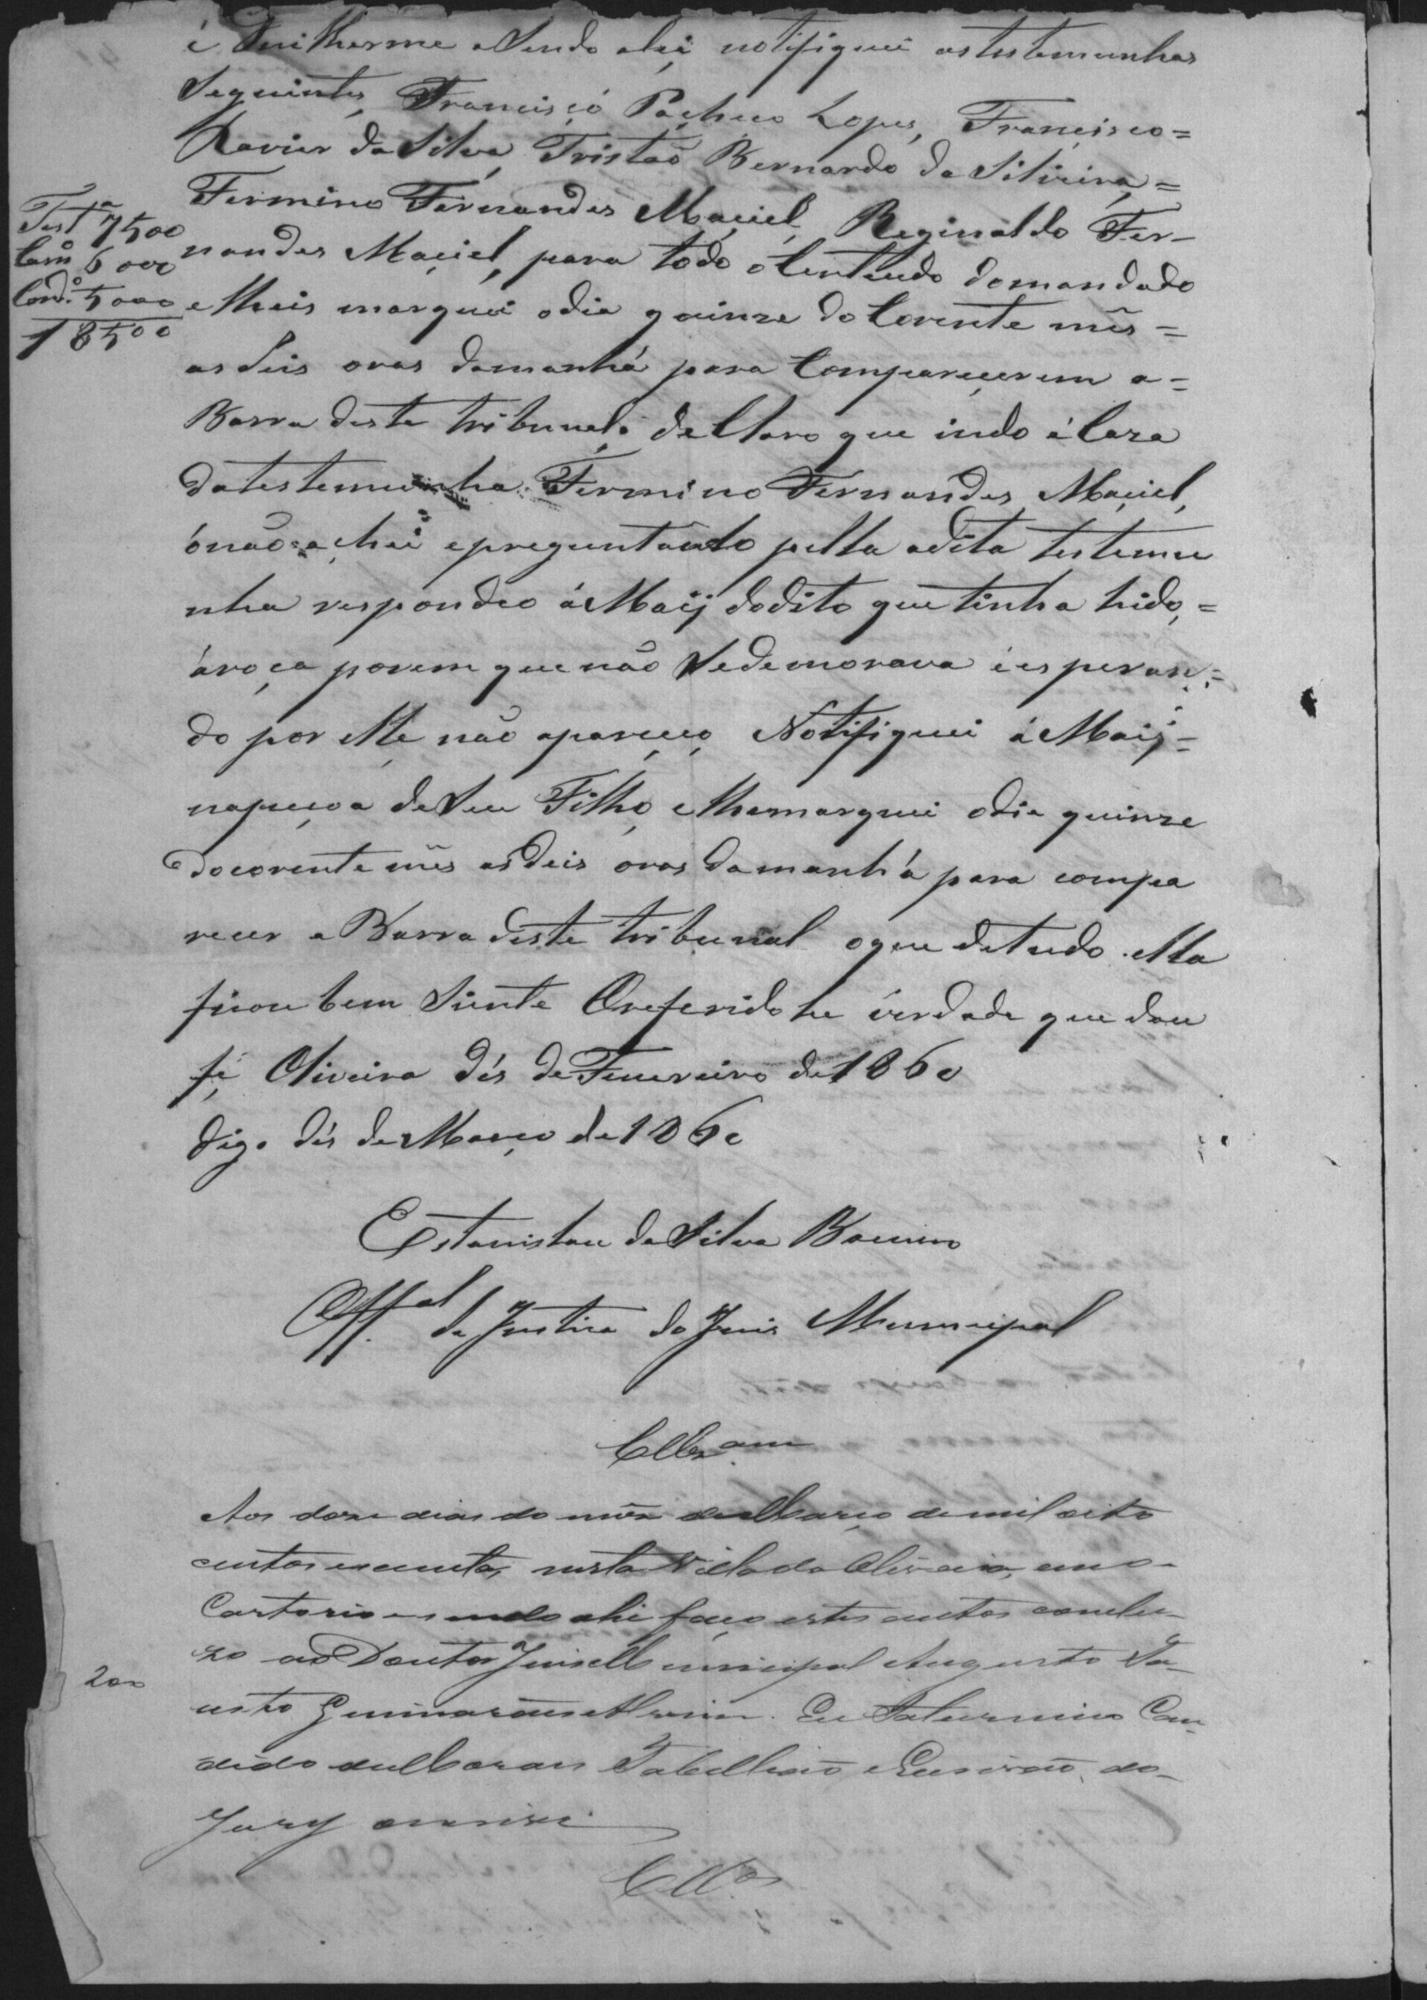 é Guilherme e Sendo ahi notifiquei as testemunhas
Seguintes, Francisco Pacheco Lopes, Francisco=
Xavier da Silva, Tristaõ Bernardo da Silveira,=
Fermino Fernandes Maciel, Reginaldo Fer-
nandes Maciel, para todo o Conteudo do mandado
e lheis marquei o dia quinze do Corente mês=
as deis oras da manhá para Comparecerem a=
Barra deste tribunal, declaro que indo á Caza
da testemunha Fermino Fernandes Maciel,
ó não achei e preguntando pella a dita testemu
nha respondeo á Maij do dito que tinha hido,=
á roça porem que não Se demorava é esperan=
do por elle não apareceo, Notifiquei á Maij=
na peçoa de Seu Filho, e lhe marquei o dia quinze
do corente mês as deis oras da manhá para compa
recer a Barra deste tribunal o que de tudo ella
ficou bem Siente O referido he verdade que dou
fé Oliveira dés de Fevereiro de 1860
digo dés de Março de 1860
Estanislau da Silva
Off.al de Justiça do Juis Municipal
Test.a 7500
Cam.o 6000
Cond.o 5000
18500
Cllzam
Aos doze dias do mês de Março de mil oito
centos e secenta, nesta Villa da Oliveira, em o-
Cartorio e sendo ahi faço estes autos conclu-
zo ao Doutor Juis Municipal Augusto Fa-
usto Guimarães Alvim. Eu Saturnino Can-
dido de Moraes Tabelliaõ e Escrivaõ do-
Jury escrivi
200
Cllos